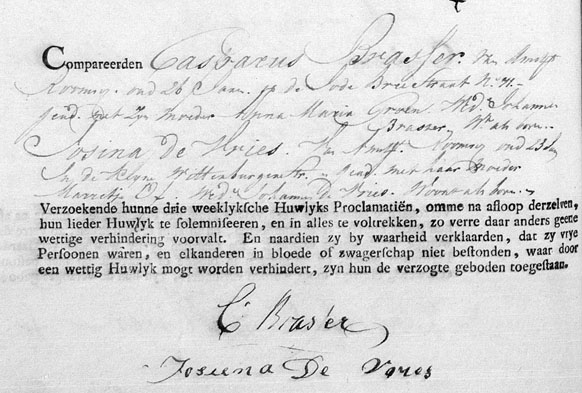 Compareerden Casparus Brasser. van Amst
Roomsz. oud 26 Jaar. op de Jode Breestraat N: 71.
gead. met zyn moeder Anna Maria Groen. Wed: Johannes
Brasser. Wt als boven.
Josina De Vries. van Amst. Roomsz oud 23 Jr
In de Kleine Wittenburgerstr. gead. met haar moeder
Wed: Johannes de Vries. Woont als boven.
Verzoekende hunne drie weeklyksche Huwlyks Proclamatiën, omme na afloop derzelven,
hun lieder Huwlyk te solemniseeren, en in alles te voltrekken, zo verre daar anders geene
wettige verhindering voorvalt. En naardien zy by waarheid verklaarden, dat zy vrye
Persoonen waren, en elkanderen in bloede of zwagerschap niet bestonden, waar door
een wettig Huwlyk mogt worden verhindert, zyn hun de verzogte geboden toegestaan.
C Brasser
Josiena De Vries